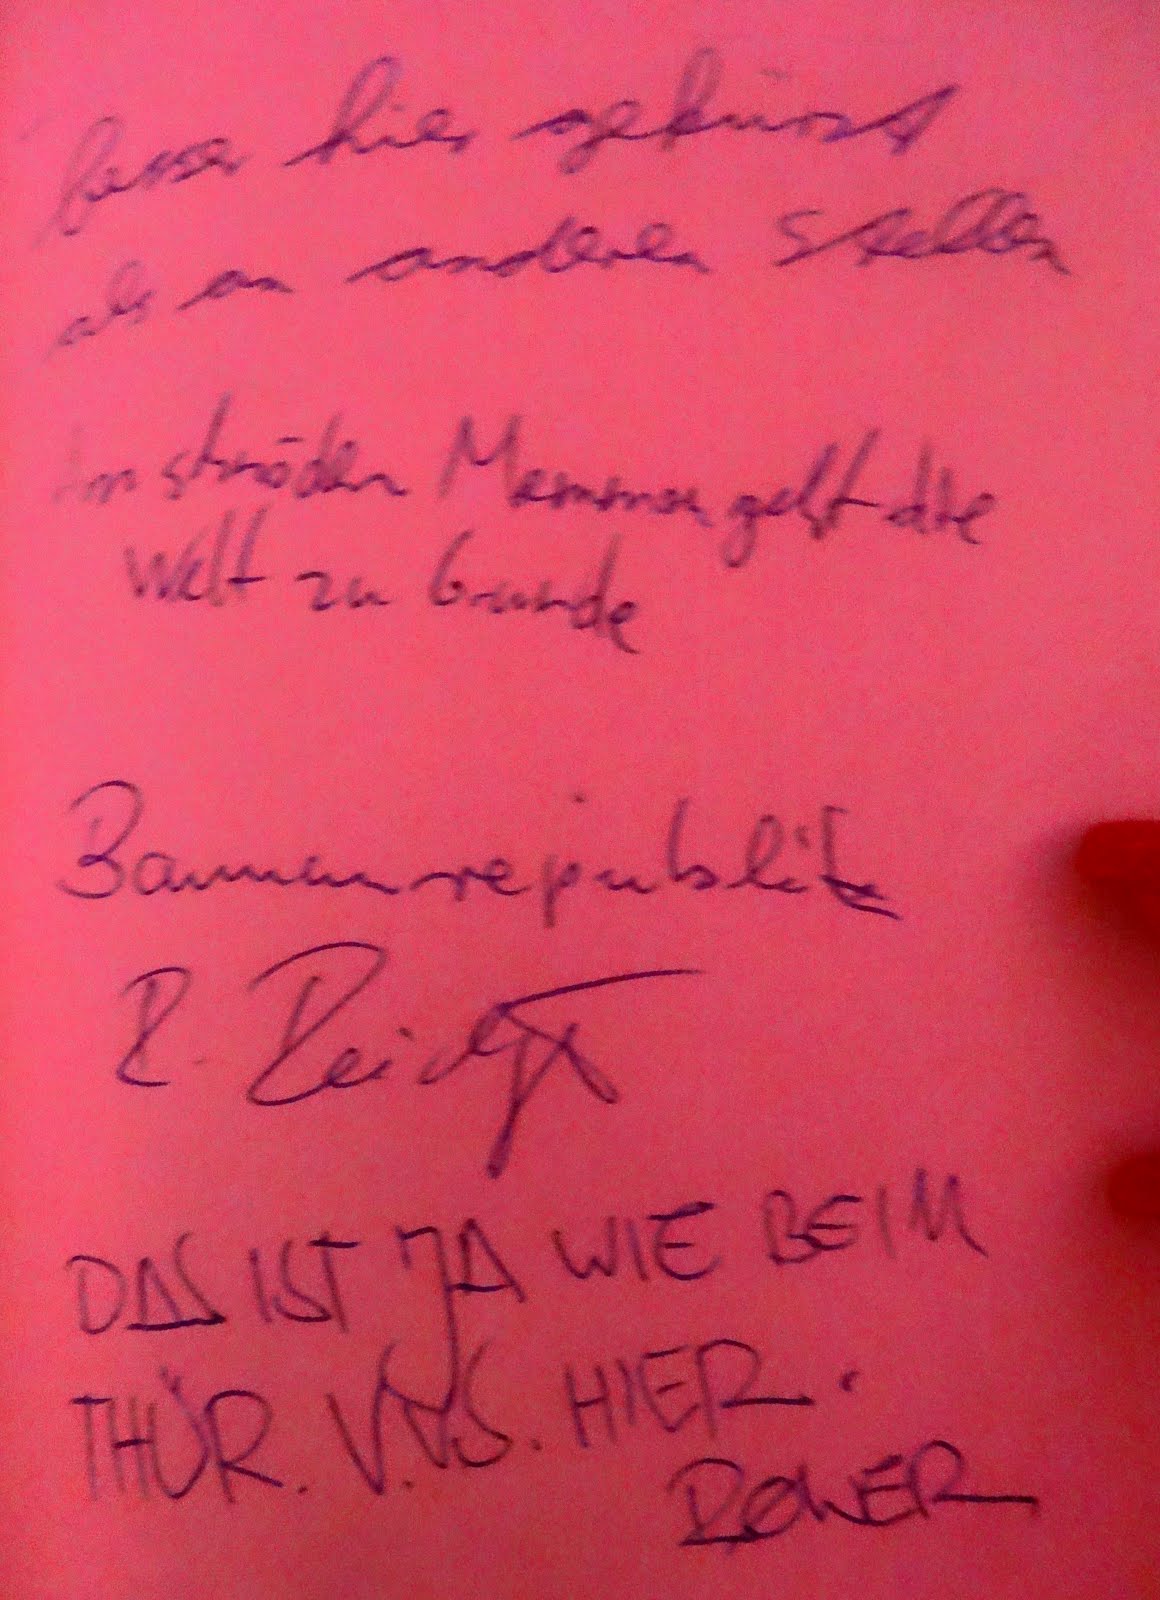 besser hier gekürzt
als an anderen Stellen
Am schnöden Mammon geht die
Welt zu Grunde
Bananenrepublik
R.
DAS IST JA WIE BEIM
THÜR. V.S. HIER.